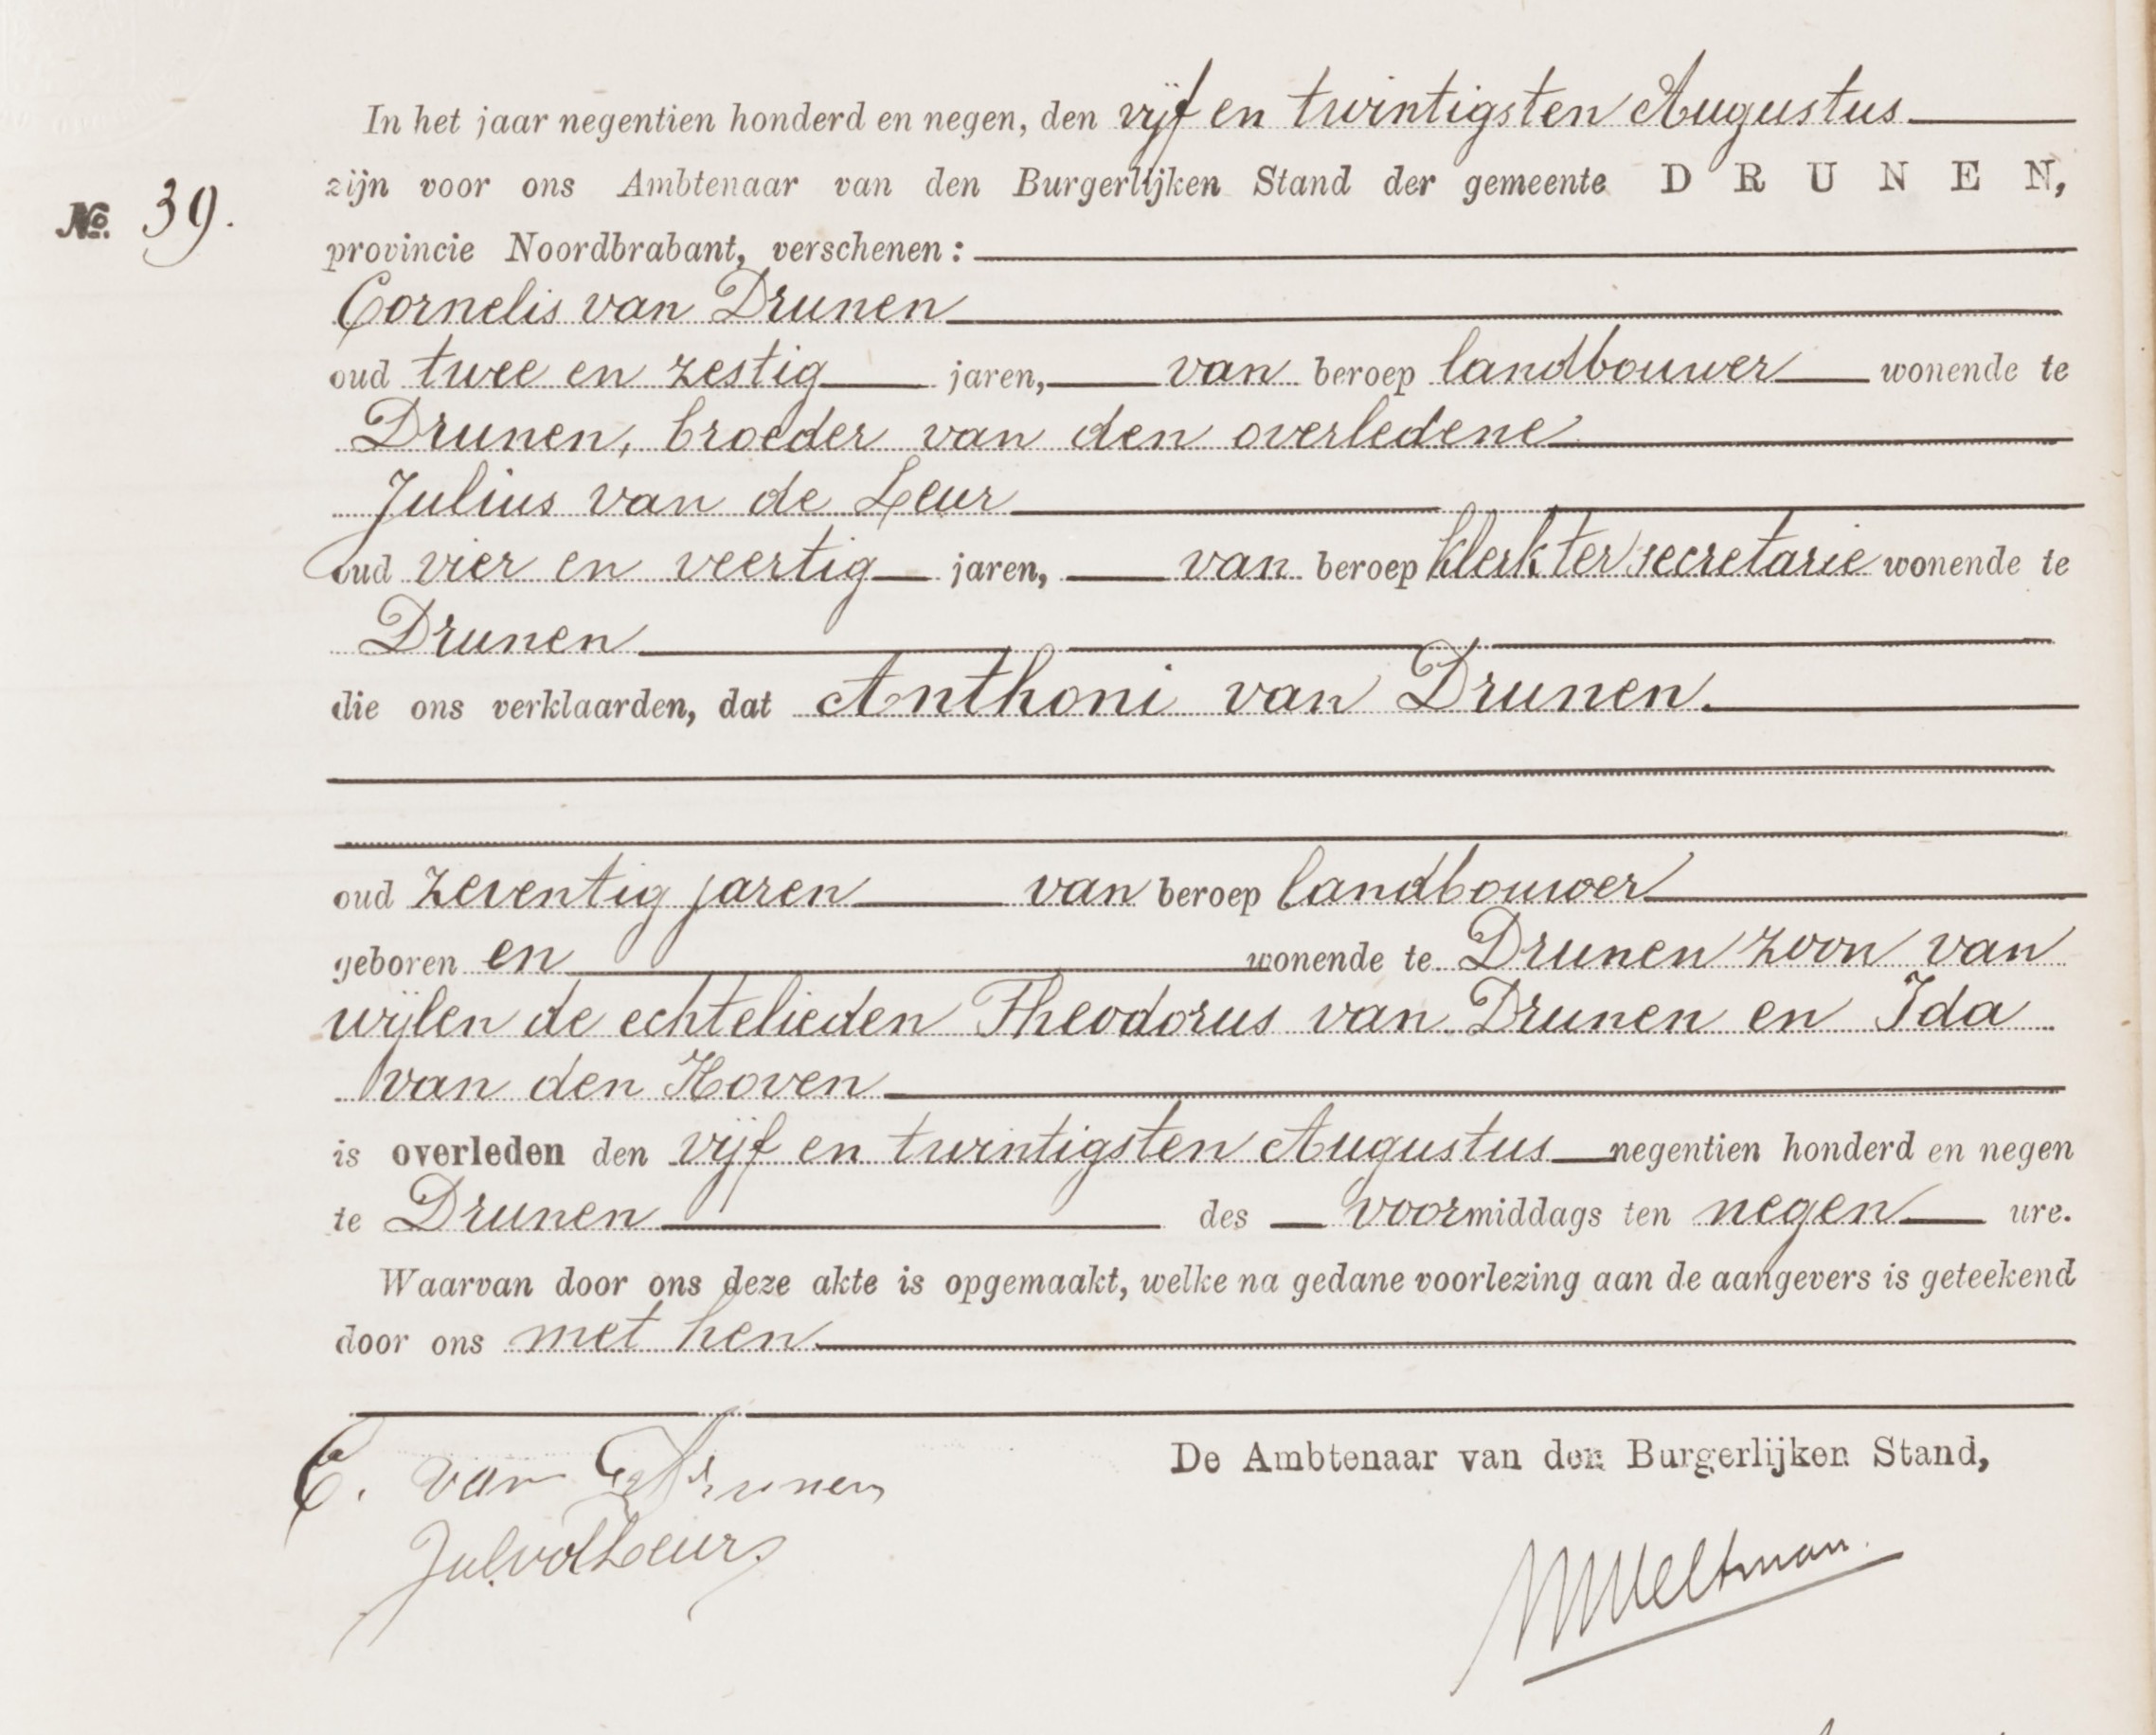 In het jaar negentien honderd en negen, den vijf en twintigsten Augustus
zijn voor ons Ambtenaar van den Burgerlijken Stand der gemeente DRUNEN,
No. 39.
provincie Noordbrabant, verschenen:
Cornelis van Drunen
oud twee en zestig jaren, van beroep landbouwer wonende te
Drunen, broeder van den overledene
Julius van de Leur
oud vier en veertig jaren, van beroep klerk ter secretarie wonende te
Drunen
die ons verklaarden, dat Anthoni van Drunen.
oud zeventig jaren van beroep landbouwer
geboren en wonende te Drunen zoon van
wijlen de echtelieden Theodorus van Drunen en Ida
van den Hoven
is overleden den vijf en twintigsten Augustus negentien honderd en negen
te Drunen des voormiddags ten negen ure.
Waarvan door ons deze akte is opgemaakt, welke na gedane voorlezing aan de aangevers is geteekend
door ons met hen.
De Ambtenaar van den Burgerlijken Stand,
C. van Drunen
Jul.vdLeur.